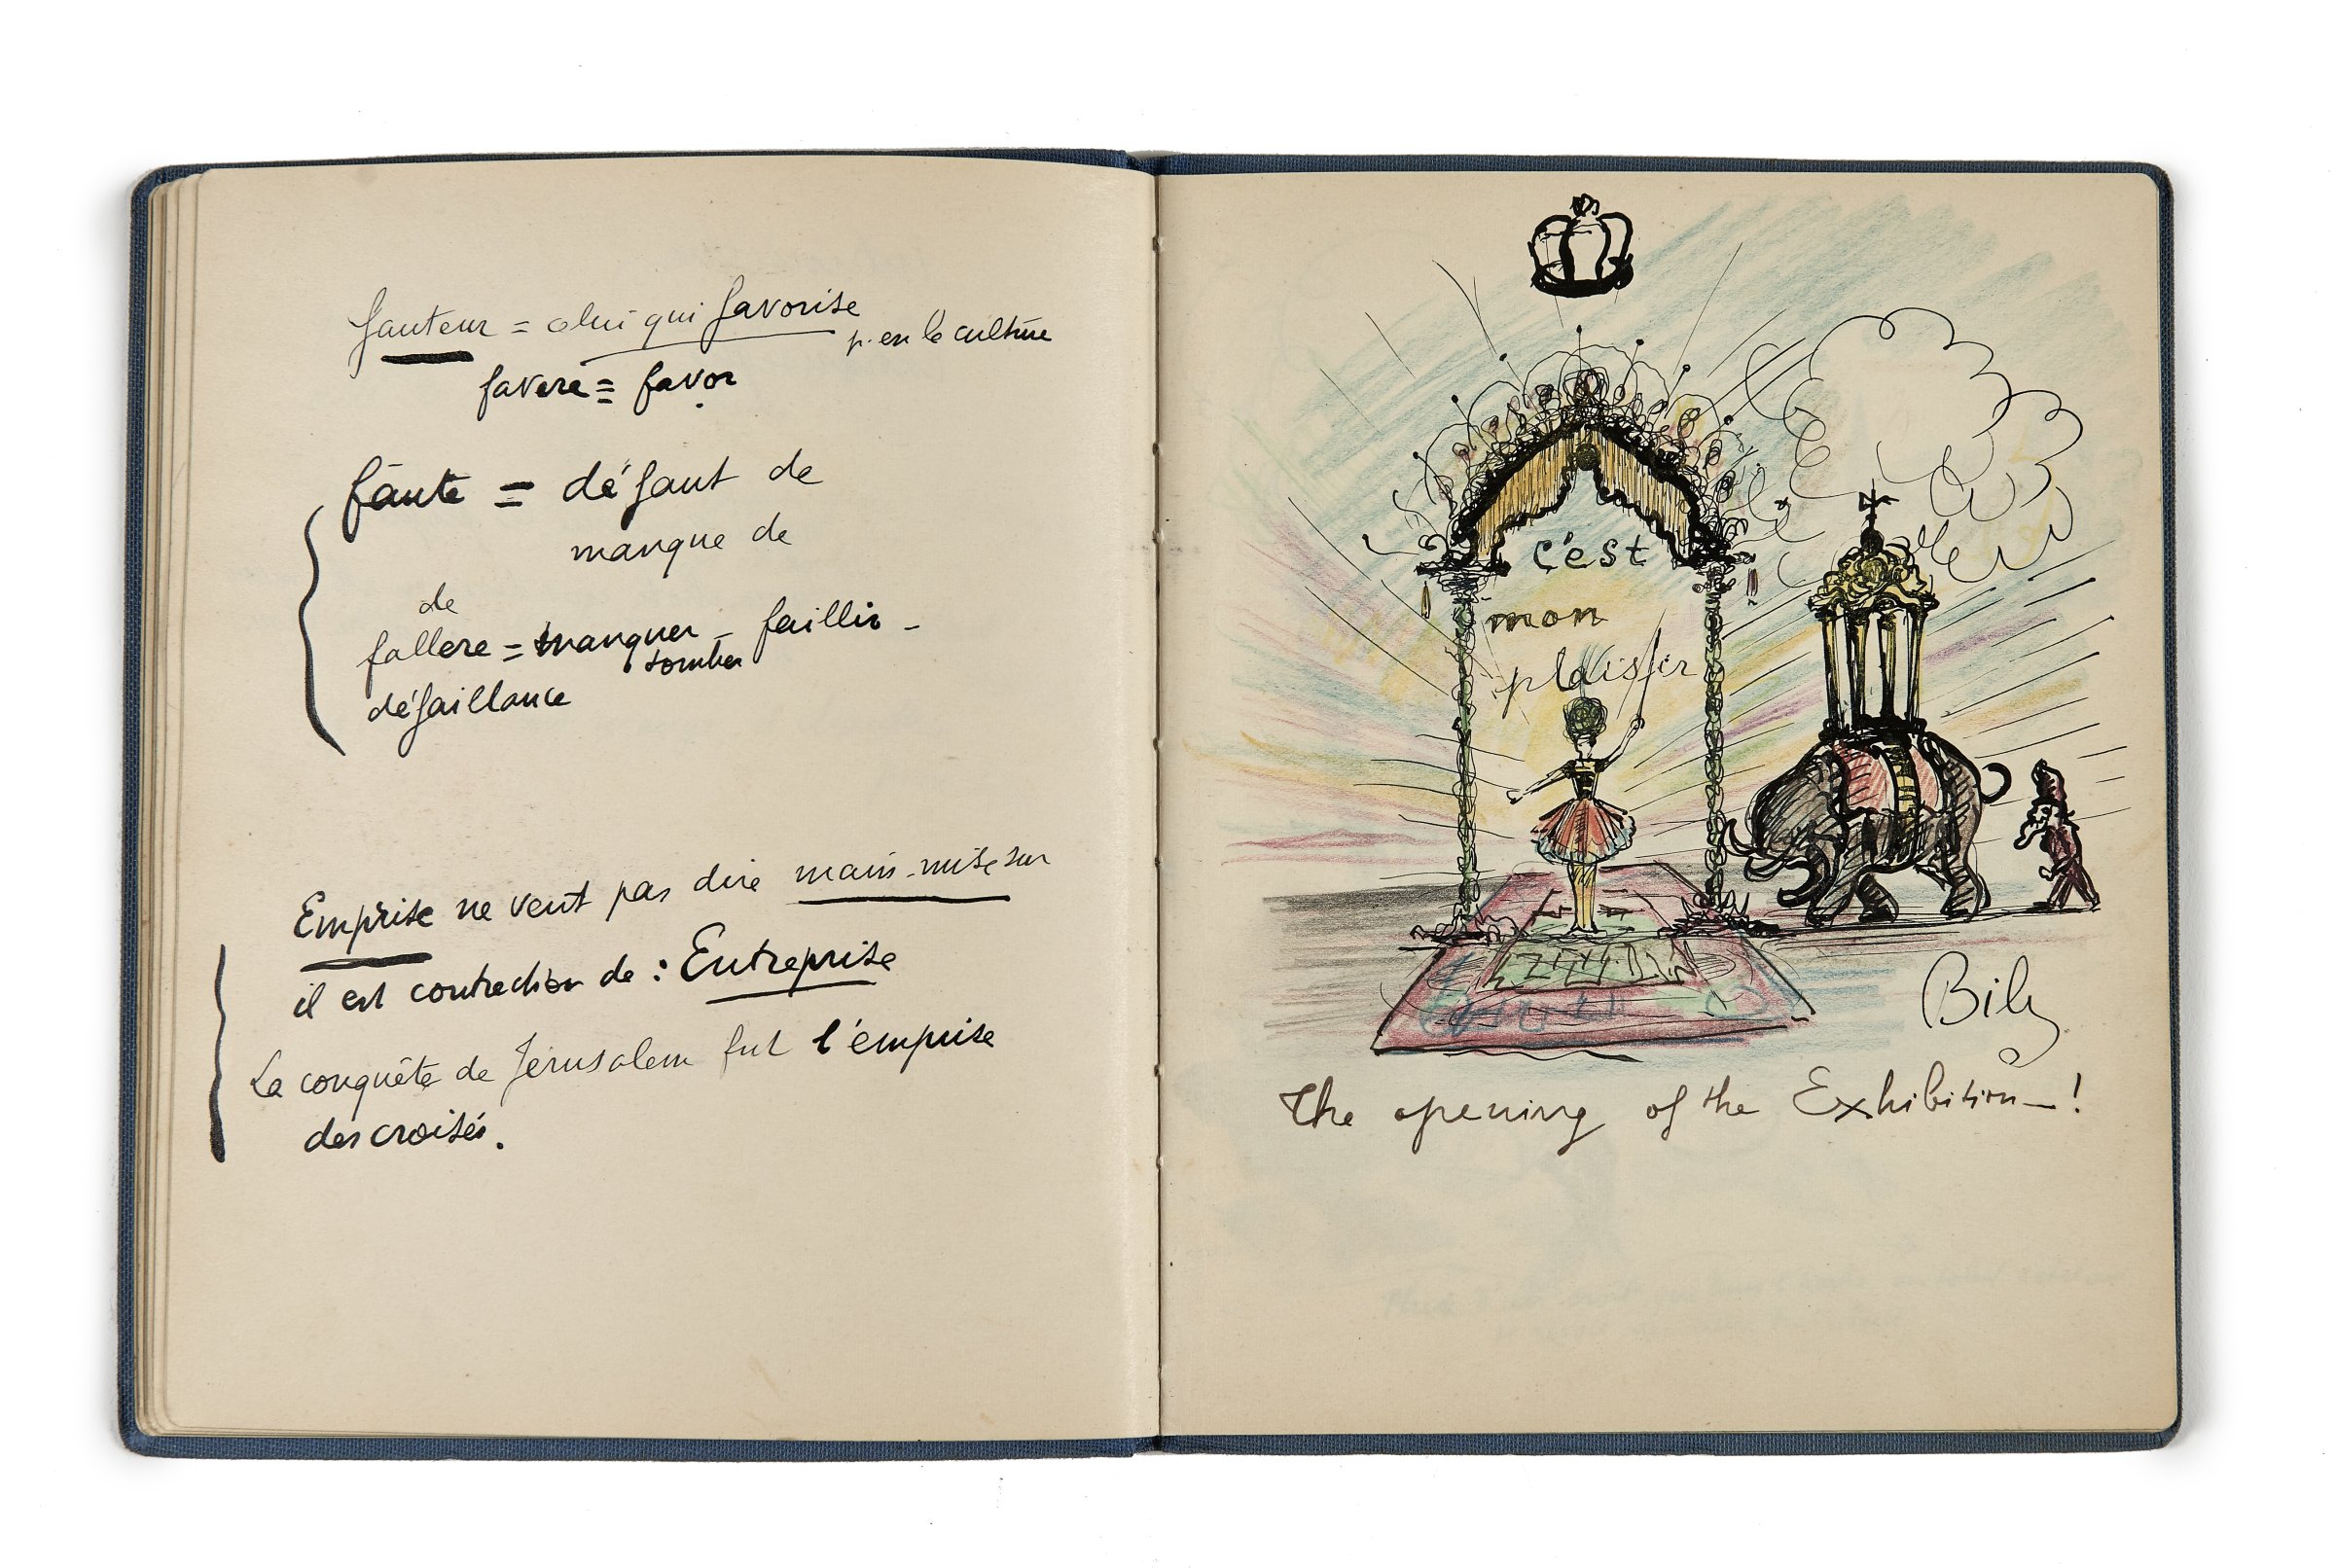 fauteur = celui qui favorise
p. ex la culture
favere = favor
faute = défaut de
manque de
de
fallere = manquer - faillir -
tomber
défaillance
Emprise ne veut pas dire main-mise sur
il est contraction de : Entreprise
La conquête de Jérusalem fut l'emprise
des croisés.
c'est
mon
plaisir
Bily
The opening of the Exhibition—!